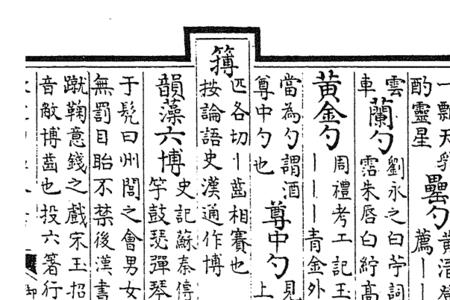 一瓢天乳
酌靈星
罍勺
薦丨丨
雲
車
蘭勺
劉永之白苧詞
露朱唇白紵髙
黄金勺
周禮考工記玉
丨丨丨青金外
當為勺謂酒
尊中勺也
尊中勺
見
上
簿
匹各切丨齒相賽也
按論語史漢通作博
韻藻六博
史記蘇秦傳
竽鼓瑟彈琴
于髠曰州閭之會男女
無罰目眙不禁後漢書
蹴鞠意錢之戲宋玉招
音敵博齒也投六箸行